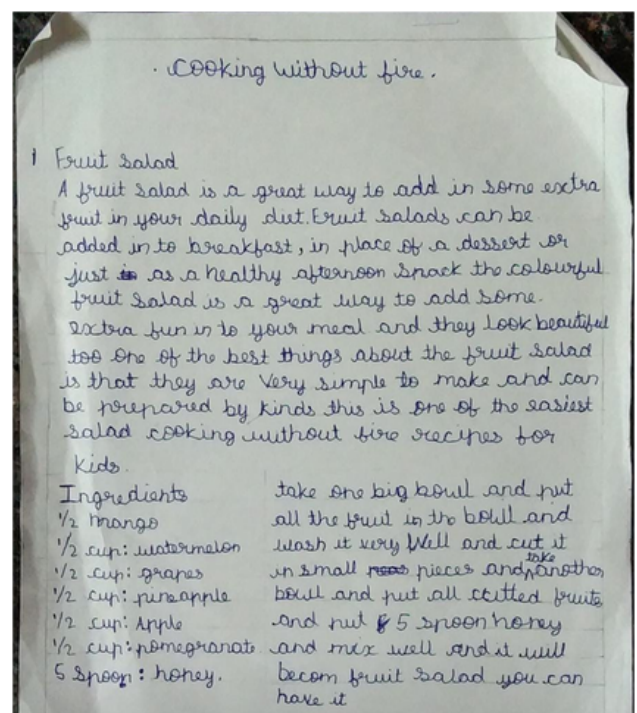 . Cooking without fire.
1 Fruit Salad
A fruit salad is a great way to add in some extra
fruit in your daily diet. Fruit salads can be
added in to breakfast, in place of a dessert or
just as a healthy afternoon snack the colourful
fruit salad is a great way to add some.
extra fun in to your meal and they look beautiful
too one of the best things about the fruit salad
is that they are very simple to make and can
be prepared by kinds this is one of the easiest
salad cooking without fire recipes for
kids.
Ingredients
1/2 mango
1/2 cup: watermelon
1/2 cup: grapes
1/2 cup: pineapple
1/2 cup: Apple
1/2 cup: pomegranate
5 spoon: honey.
take one big bowll and put
all the fruit in the bowll and
wash it very well and cut it
in small pieces and take another
bowll and put all cutted fruits
and put 5 spoon honey
and mix well and it will
becom fruit salad you can
have it